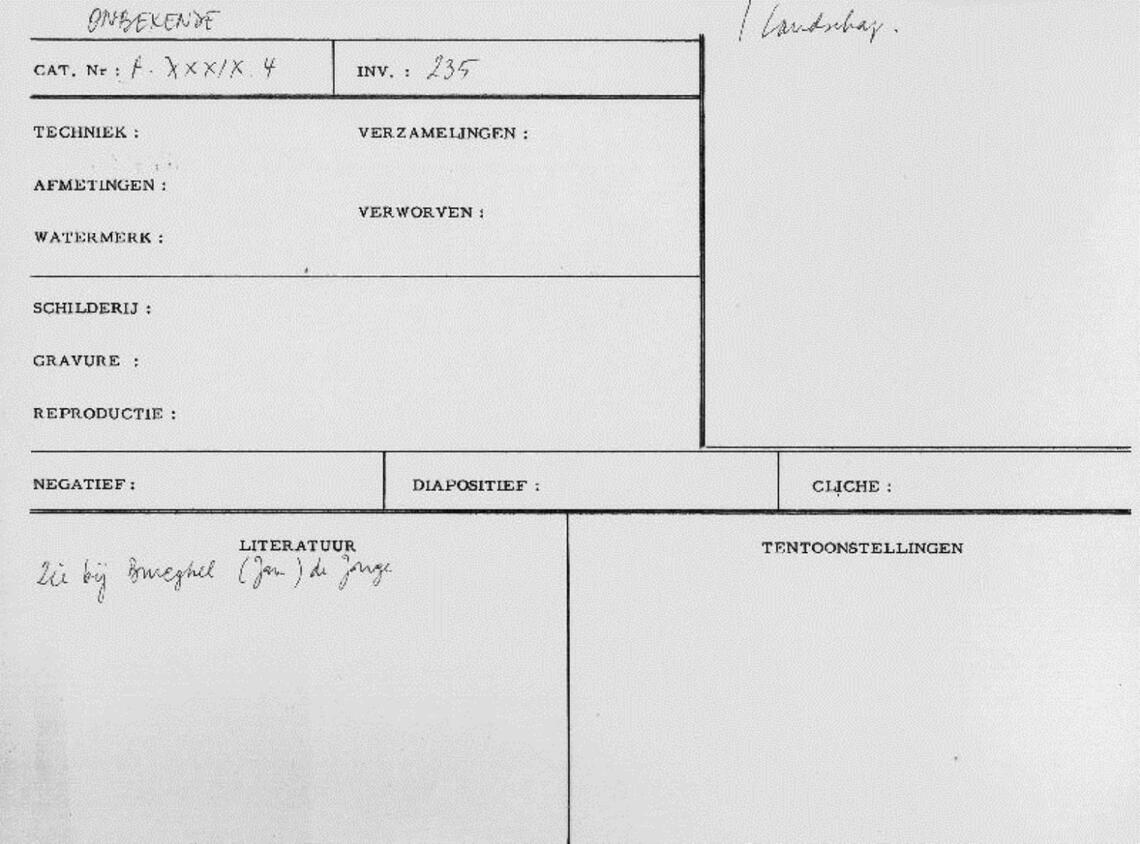 ONBEKENDE
/ Landschap.
CAT. Nr : A. XXXIX 4
INV. : 235
TECHNIEK :
VERZAMELINGEN :
AFMETINGEN :
VERWORVEN :
WATERMERK :
SCHILDERIJ :
GRAVURE :
REPRODUCTIE :
NEGATIEF :
DIAPOSITIEF :
CLICHE :
LITERATUUR
TENTOONSTELLINGEN
Zie bij Brueghel (Jan) de Jonge